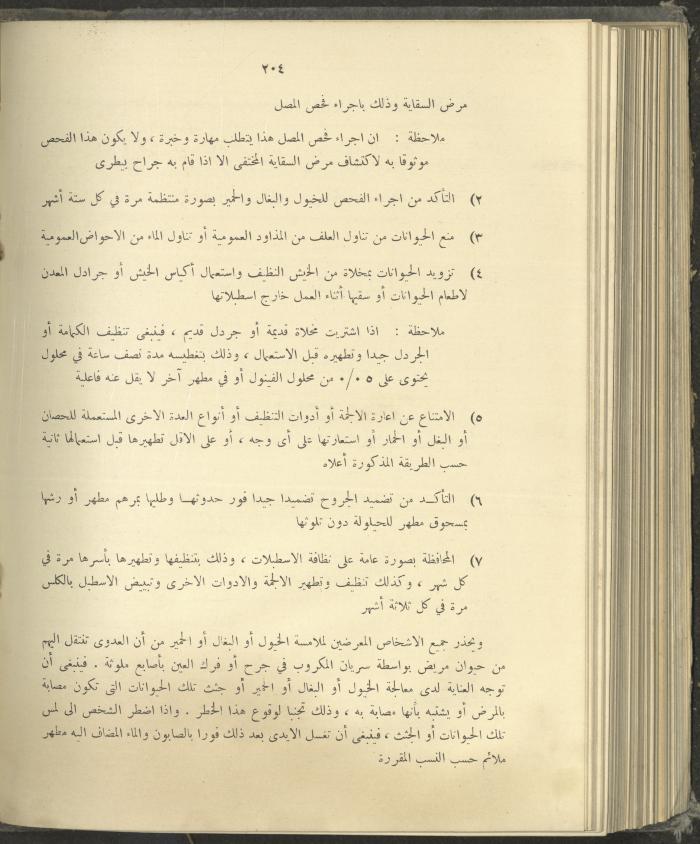 ٢٠٤
مرض السقاية وذلك باجراء فحص المصل
ملاحظة : ان اجراء فحص المصل هذا يتطلب مهارة وخبرة ، ولا يكون هذا الفحص
موثوقا به لاكتشاف مرض السقاية المختفى الا اذا قام به جراح بيطرى
٢) التأكد من اجراء الفحص للخيول والبغال والحمير بصورة منتظمة مرة في كل ستة أشهر
٣) منع الحيوانات من تناول العلف من المذاود العمومية أو تناول الماء من الاحواض العمومية
٤) تزويد الحيوانات بمخلاة من الخيش النظيف واستعمال أكياس الخيش أو جرادل المعدن
لاطعام الحيوانات أو سقيها أثناء العمل خارج اسطبلاتها
ملاحظة : اذا اشتريت مخلاة قديمة أو جردل قديم ، فينبغى تنظيف الكمامة أو
الجردل جيدا وتطهيره قبل الاستعمال ، وذلك بتغطيسه مدة نصف ساعة في محلول
يحتوى على ٥ ٠/٠ من محلول الفينول أو في مطهر آخر لا يقل عنه فاعلية
٥) الامتناع عن اعارة الالجمة أو أدوات التنظيف أو أنواع العدة الاخرى المستعملة للحصان
أو البغل أو الحمار أو استعارتها على أى وجه ، أو على الاقل تطهيرها قبل استعمالها ثانية
حسب الطريقة المذكورة أعلاه
٦) التأكد من تضميد الجروح تضميدا جيدا فور حدوثها وطليها بمرهم مطهر أو رشها
بمسحوق مطهر للحيلولة دون تلوثها
٧) المحافظة بصورة عامة على نظافة الاسطبلات ، وذلك بتنظيفها وتطهيرها بأسرها مرة في
كل شهر ، وكذلك تنظيف وتطهير الالجمة والادوات الاخرى وتبييض الاسطبل بالكلس
مرة في كل ثلاثة أشهر
ويحذر جميع الاشخاص المعرضين لملامسة الخيول أو البغال أو الحمير من أن العدوى تنتقل اليهم
من حيوان مريض بواسطة سريان المكروب في جرح أو فرك العين بأصابع ملوثة . فينبغى أن
توجه العناية لدى معالجة الخيول أو البغال أو الحمير أو جثث تلك الحيوانات التى تكون مصابة
بالمرض أو يشتبه بأنها مصابة به ، وذلك تجنبا لوقوع هذا الخطر . واذا اضطر الشخص الى لمس
تلك الحيوانات أو الجثث ، فينبغى أن تغسل الايدى بعد ذلك فورا بالصابون والماء المضاف اليه مطهر
ملائم حسب النسب المقررة